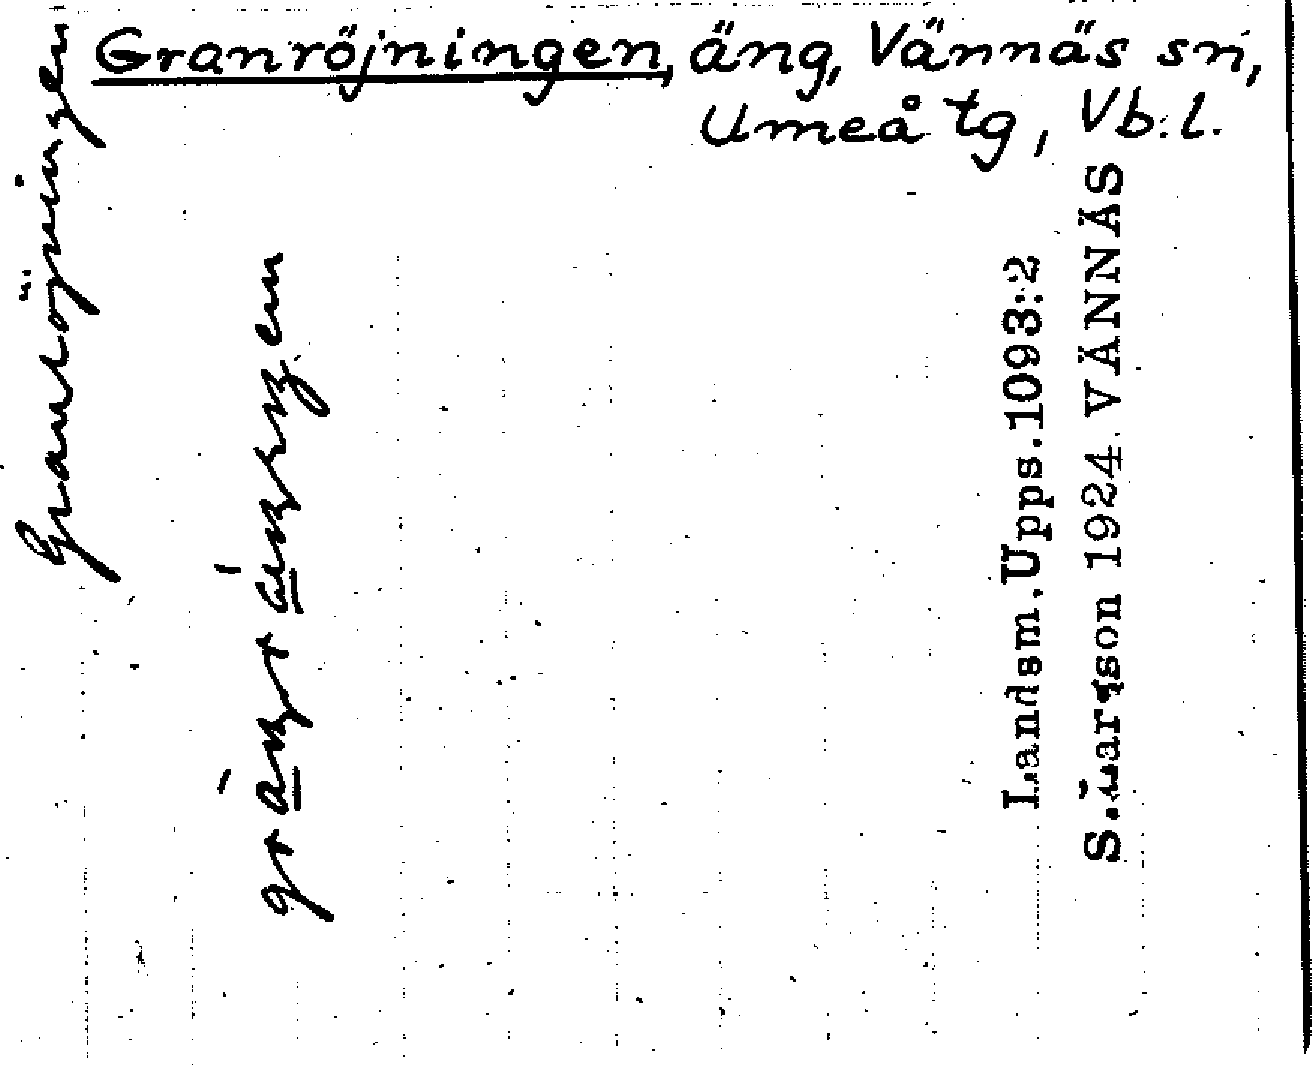 Granröjningen, äng, Vännäs sn,
Umeå tg, Vb.l.
Granröjningen
Landsm. Upps. 1093:2
S. Larsson 1924 VÄNNÄS